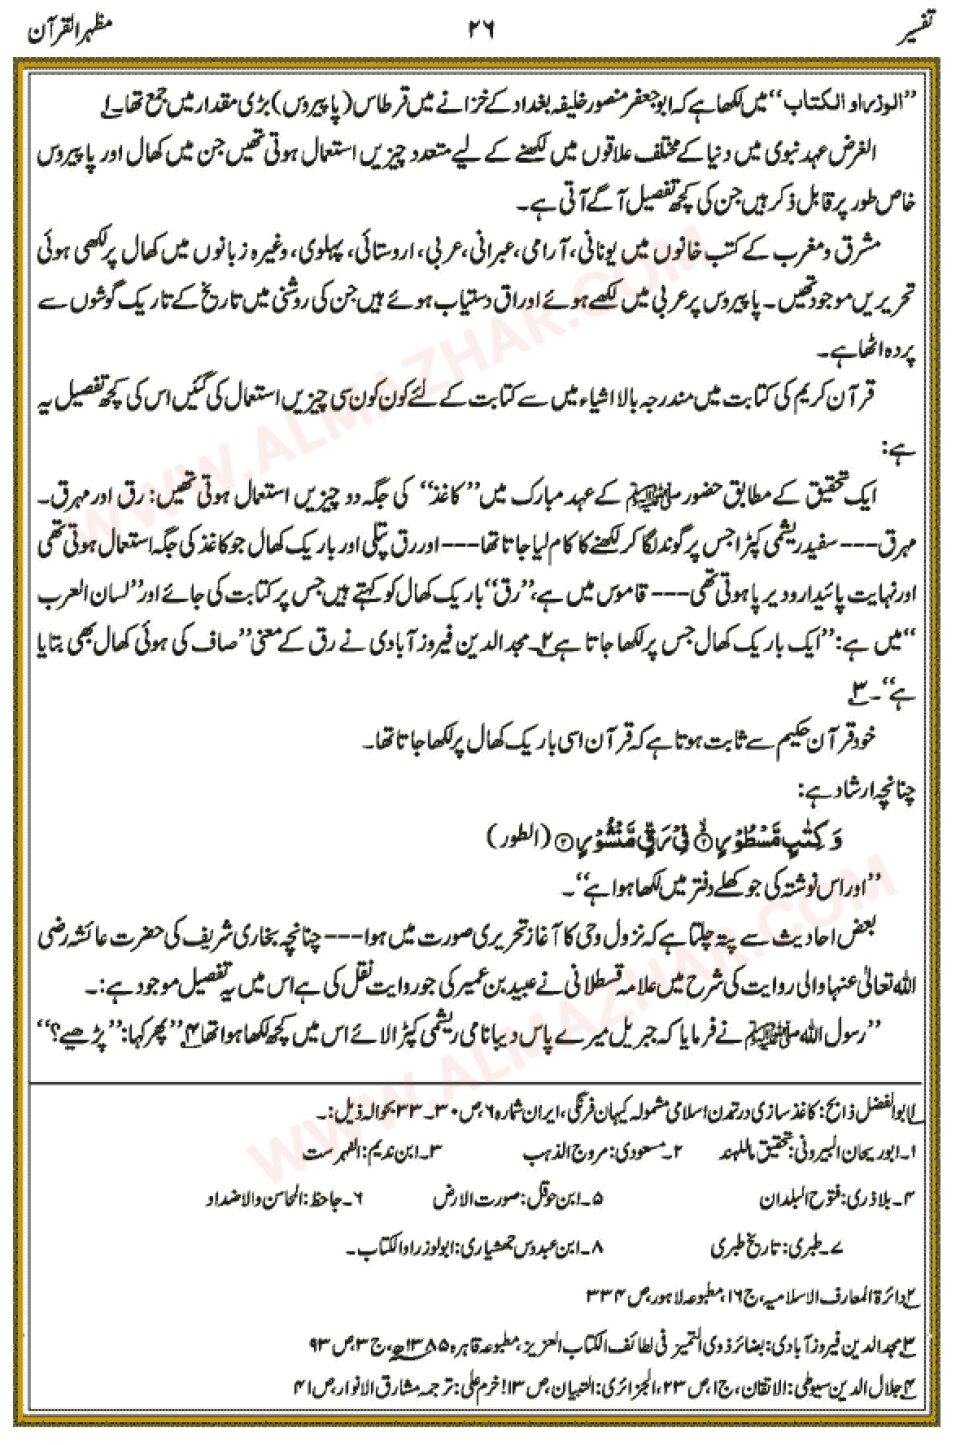 تفسیر ۲۶ مظہرالقرآن
”الوذراو الکتاب“ میں لکھا ہے کہ ابو جعفر منصور خلیفہ بغداد کے خزانے میں قرطاس (پاپیروس) بڑی مقدار میں جمع تھا۔۱
الغرض عہد نبوی میں دنیا کے مختلف علاقوں میں لکھنے کے لیے متعدد چیزیں استعمال ہوتی تھیں جن میں کھال اور پاپیروس
خاص طور پر قابل ذکر ہیں جن کی کچھ تفصیل آگے آتی ہے۔
مشرق و مغرب کے کتب خانوں میں یونانی، آرامی، عبرانی، عربی، اروستائی، پہلوی، وغیرہ زبانوں میں کھال پر لکھی ہوئی
تحریریں موجود تھیں۔ پاپیروس پر عربی میں لکھے ہوئے اوراق دستیاب ہوئے ہیں جن کی روشنی میں تاریخ کے تاریک گوشوں سے
پردہ اٹھا ہے۔
قرآن کریم کی کتابت میں مندرجہ بالا اشیاء میں سے کتابت کے لئے کون کون سی چیزیں استعمال کی گئیں اس کی کچھ تفصیل یہ
ہے:
ایک تحقیق کے مطابق حضور ﷺ کے عہد مبارک میں ”کاغذ“ کی جگہ دو چیزیں استعمال ہوتی تھیں: رق اور مہرق۔
مہرق --- سفید ریشمی کپڑا جس پر گوند لگا کر لکھنے کا کام لیا جاتا تھا --- اور رق پتلی اور باریک کھال جو کاغذ کی جگہ استعمال ہوتی تھی
اور نہایت پائیدار و دیرپا ہوتی تھی --- قاموس میں ہے، ”رق“ باریک کھال کو کہتے ہیں جس پر کتابت کی جائے اور ”لسان العرب
“ میں ہے: ”ایک باریک کھال جس پر لکھا جاتا ہے۲۔ مجد الدین فیروز آبادی نے رق کے معنی ”صاف کی ہوئی کھال بھی بتایا
ہے“۔ ۳
خود قرآن حکیم سے ثابت ہوتا ہے کہ قرآن اسی باریک کھال پر لکھا جاتا تھا۔
چنانچہ ارشاد ہے:
وَ كِتٰبٍ مَّسْطُوْرٍ ۙ﴿۲﴾ فِیْ رَقٍّ مَّنْشُوْرٍ ﴿۳﴾ (الطور)
”اور اس نوشتہ کی جو کھلے دفتر میں لکھا ہوا ہے“۔
بعض احادیث سے پتہ چلتا ہے کہ نزول وحی کا آغاز تحریری صورت میں ہوا --- چنانچہ بخاری شریف کی حضرت عائشہ رضی
اللہ تعالیٰ عنہا والی روایت کی شرح میں علامہ قسطلانی نے عبید بن عمیر کی جو روایت نقل کی ہے اس میں یہ تفصیل موجود ہے:۔
”رسول اللہ ﷺ نے فرمایا کہ جبریل میرے پاس دیبا نامی ریشمی کپڑا لائے اس میں کچھ لکھا ہوا تھا۴ ”پھر کہا: ”پڑھیے؟“
۱ ابوالفضل ذابح: کاغذ سازی در تمدن اسلامی مشمولہ کیہان فرہنگی، ایران شمارہ ۶، ص ۳۰۔۳۳ بحوالہ ذیل:۔
۱۔ابو ریحان البیرونی: تحقیق ماللہند ۲۔ مسعودی: مروج الذہب ۳۔ابن ندیم: الفہرست
۴۔بلاذری: فتوح البلدان ۵۔ابن حوقل: صورت الارض ۶۔ جاحظ: الحاسن والاضداد
۷۔ طبری: تاریخ طبری ۸۔ابن عبدوس جھشیاری: ابولوزراوالکتاب۔
۲ دائرۃ المعارف الاسلامیہ، ج ۱۶، مطبوعہ لاہور، ص ۳۳۴
۳ مجد الدین فیروز آبادی: بضائر ذوی التمیز فی لطائف الکتاب العزیز، مطبوعہ قاہرہ ۱۳۸۵ھ، ج ۳، ص ۹۳
۴ جلال الدین سیوطی: الاتقان، ج ۱، ص ۲۳، الجزائری: التبیان، ص ۱۳! خرم علی: ترجمہ مشارق الانوار، ص ۴۱
WWW.ALMAZHAR.COM
WWW.ALMAZHAR.COM